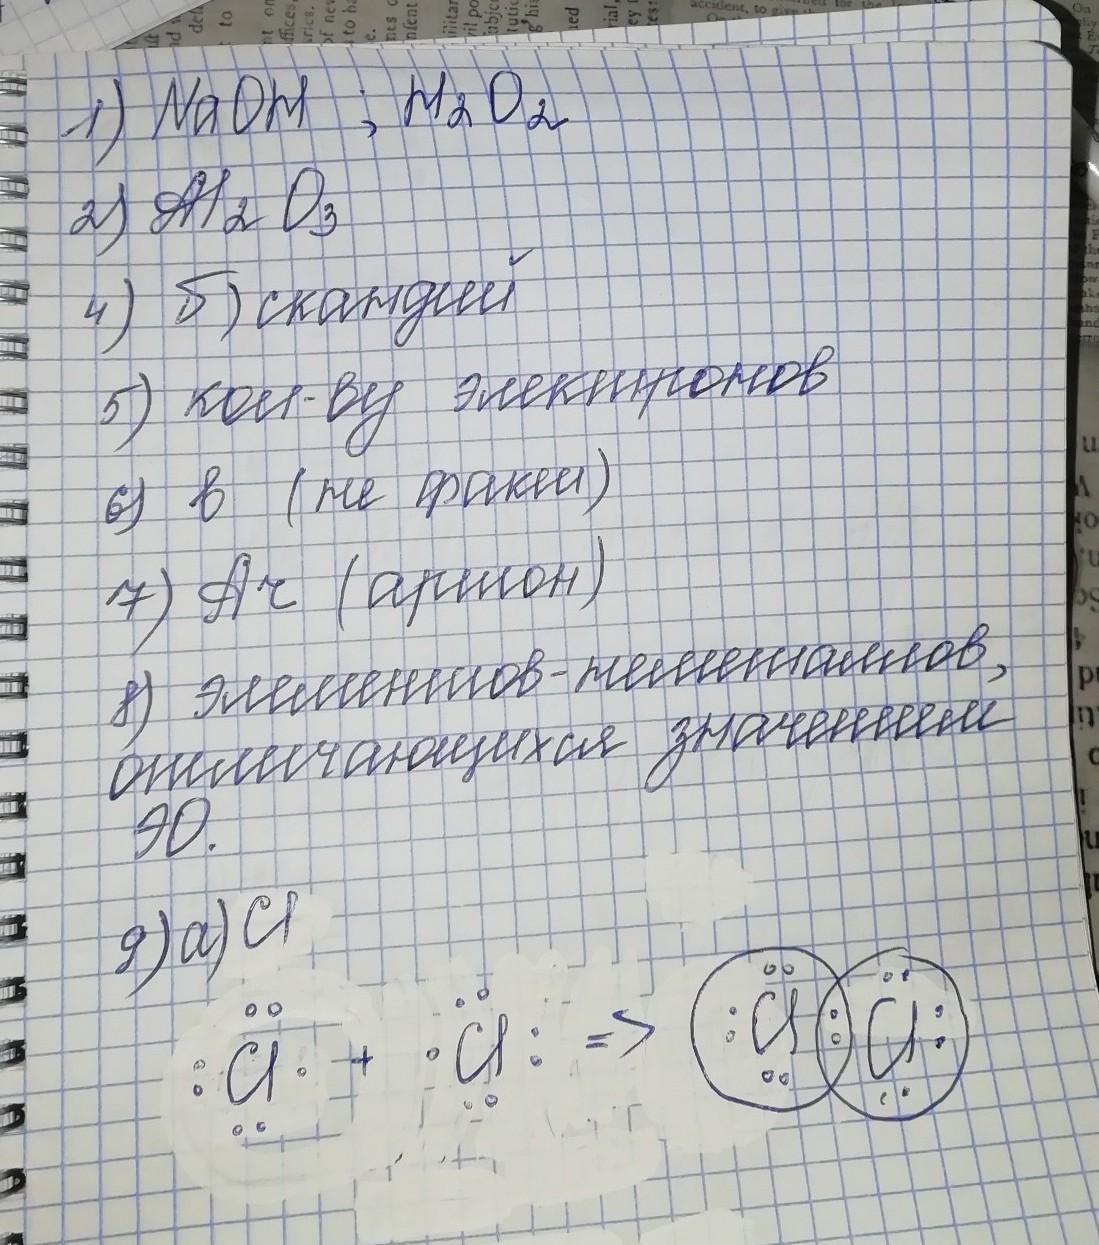 1) NaOH ; H₂O₂
2) Al₂O₃
4) б) скандий
5) кол-ву электронов
6) в (не факт)
7) Ar (аргон)
8) элементов-неметаллов,
отличающихся значением
ЭО.
9) а) Cl
Cl + Cl => Cl Cl